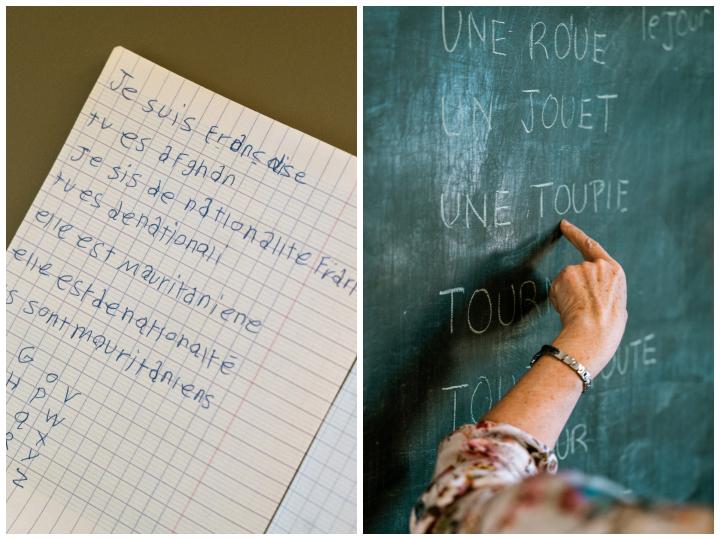 Je suis Française
tu es afghan
Je sis de nationalite Fran
tu es denationali
elle est mauritaniene
elle est denationalté
s sont mauritaniens
G O V
H P W
Q X
R Y
Z
le jour
UNE ROUE
UN JOUET
UNE TOUPIE
TOUR
TOU OUTE
UR